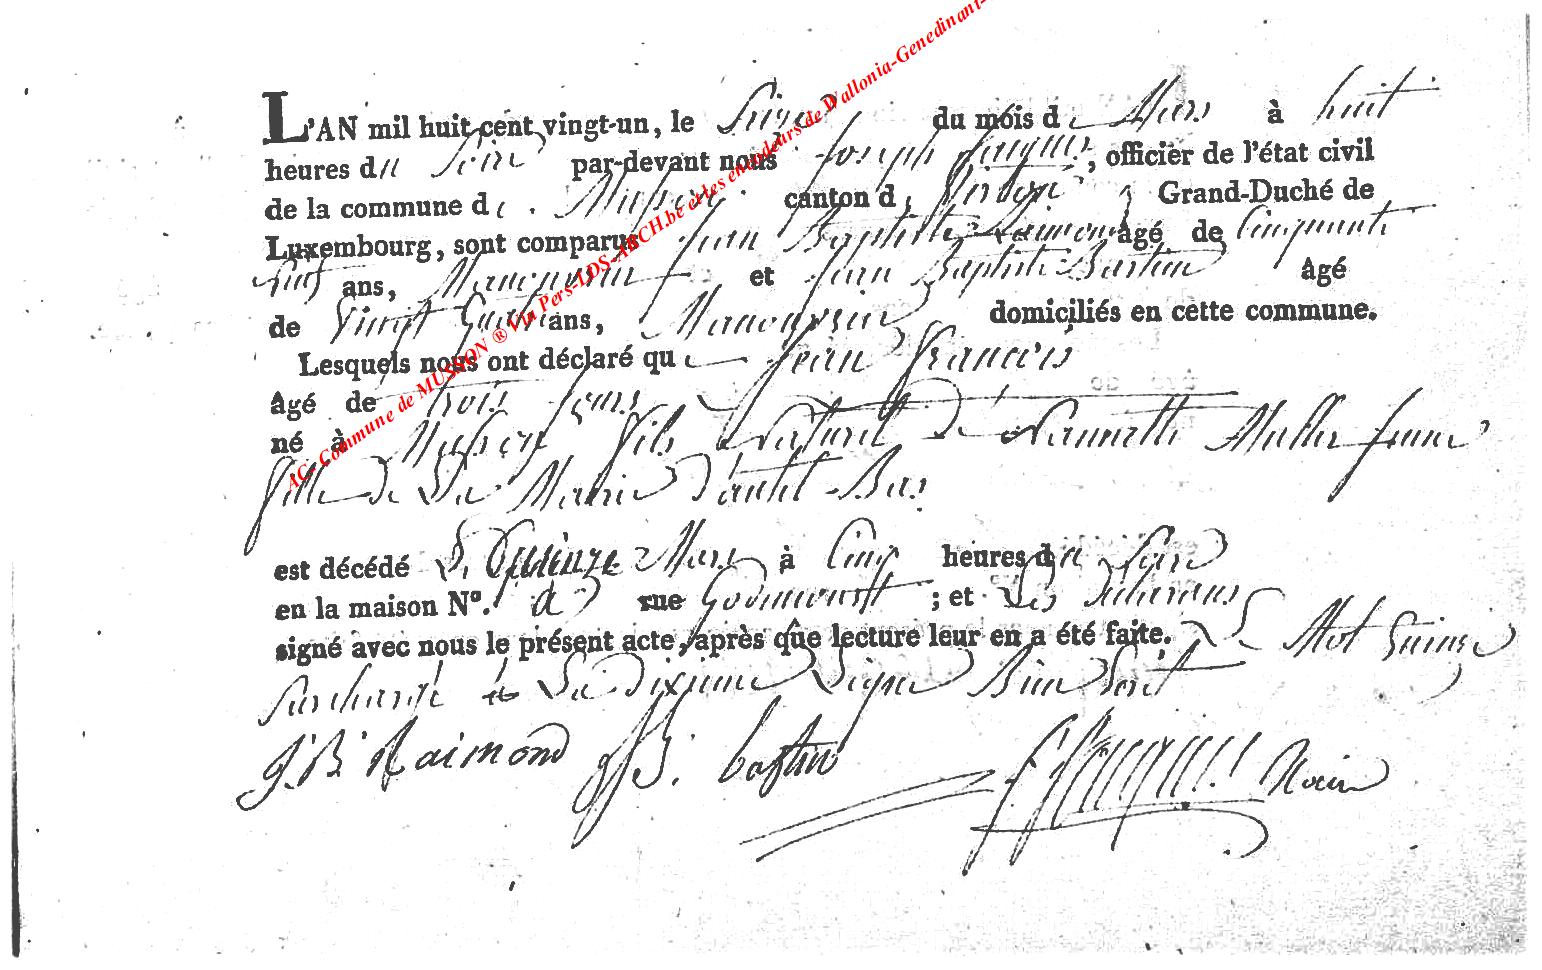 L'AN mil huit cent vingt-un, le Seize du mois de Mars à huit
heures du Soir par-devant nous Joseph Jacques, officier de l'état civil
de la commune de Musson canton de Virton Grand-Duché de
Luxembourg, sont comparus Jean Baptiste Raimond âgé de Cinquante
huit ans, Manoeuvre et Jean Baptiste Bastin âgé
de Vingt Quatre ans, Manoeuvre domiciliés en cette commune.
Lesquels nous ont déclaré que Jean François
âgé de trois Jours
né à Musson fils Naturel de Nannette Muller Jeune
fille de La Mairie d'autel-Bas
est décédé Le Quinze Mars à Cinq heures du Soir
en la maison Nº. rue Godincourt ; et Les Déclarans
signé avec nous le présent acte, après que lecture leur en a été faite. Le Mot Quinze
Surchargé à La Dixieme Ligne Bien Soit
J. B. Raimond J. B. bastin J Jacques Maire
AC- Commune de MUSSON ® Via Pers-LDS-ARCH.be et les encodeurs de Wallonia-Genedinant-